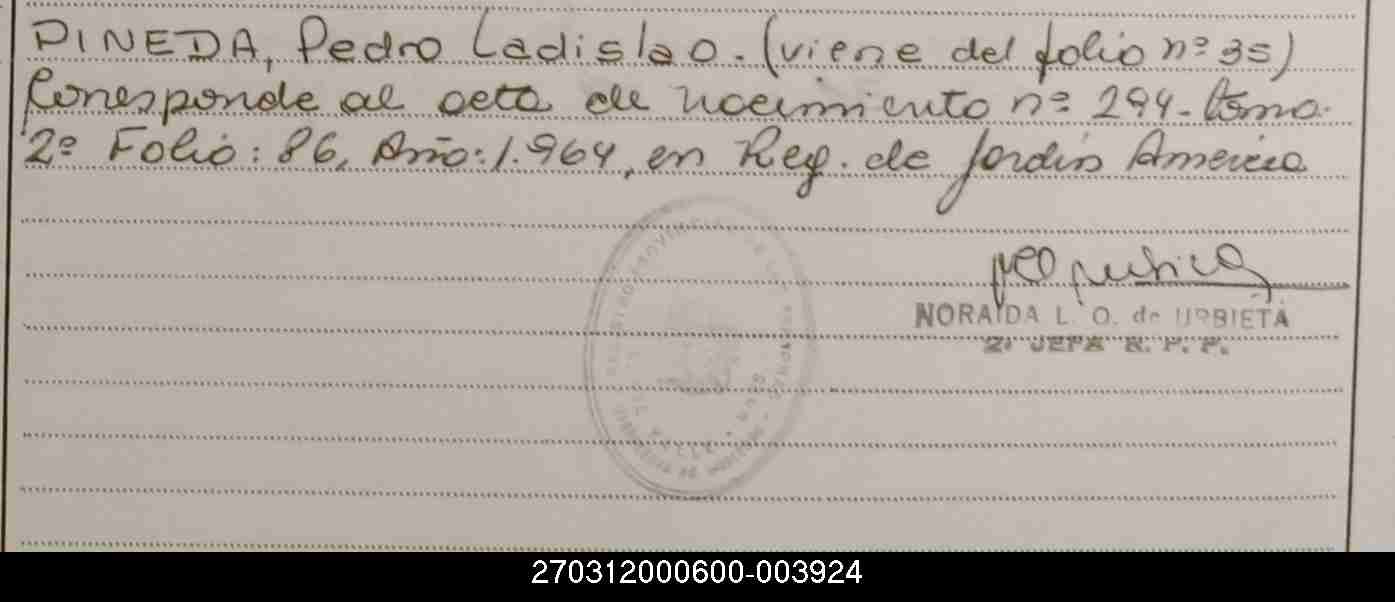 PINEDA, Pedro Ladislao. (viene del folio nº 35)
Corresponde al acta de nacimiento nº 294. tomo.
2º Folio: 86, Año: 1.964, en Reg. de Jardín America
NORAIDA L. O. de URBIETA
2ª JEFA R. P. P.
270312000600-003924